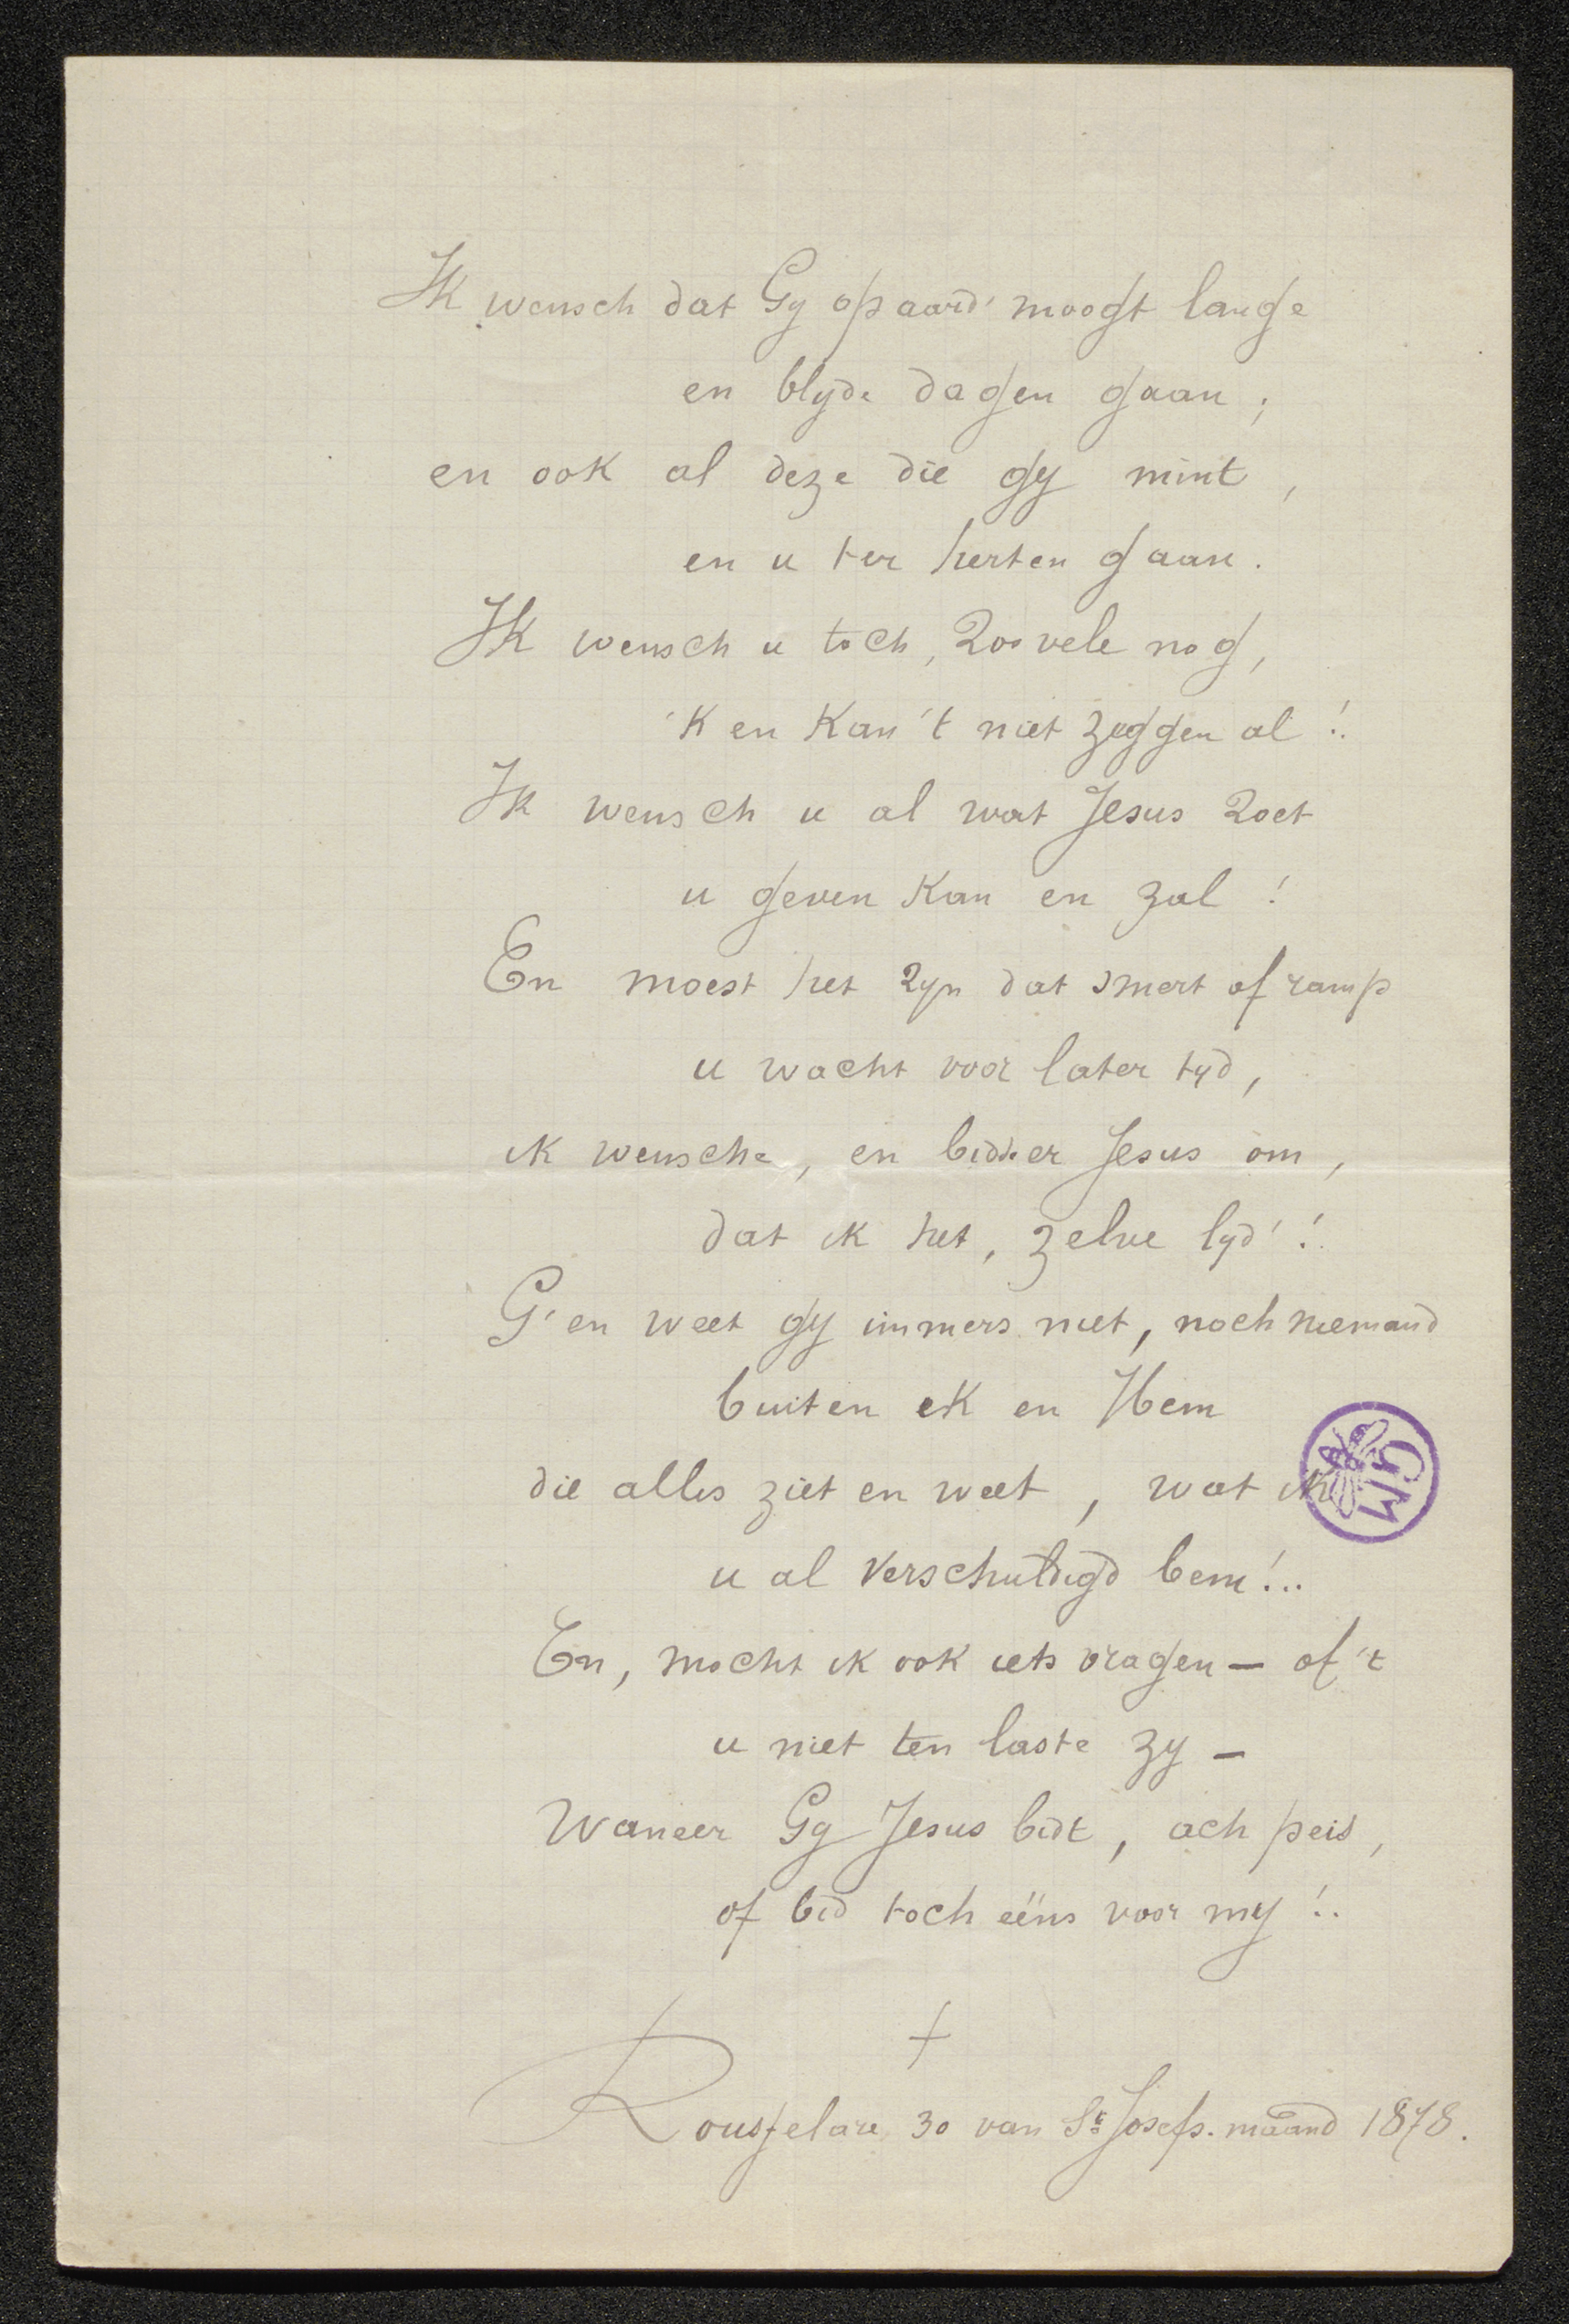 Ik wensch dat Gy op aard' moogt lange
en blyde dagen gaan;
en ook al deze die gy mint,
en u ter herten gaan.
Ik wensch u toch, zoovele nog,
'k en kan 't niet zeggen al!.
Ik wensch u al wat Jesus zoet
u geven kan en zal!
En moest het zyn dat smert of ramp
u wacht voor later tyd,
ik wensche, en bidde er Jesus om,
dat ik het, zelve lyd'!.
G'en weet gy immers niet, noch niemand
buiten ek en Hem
die alles ziet en weet, wat ik
u al verschuldigd bem!...
En, mocht ik ook iets vragen — of 't
u niet ten laste zy —
Waneer Gy Jesus bidt, ach peis,
of bid toch eëns voor my!..
+
Rousselare, 30 van St Josefs. maand 1878.
GM